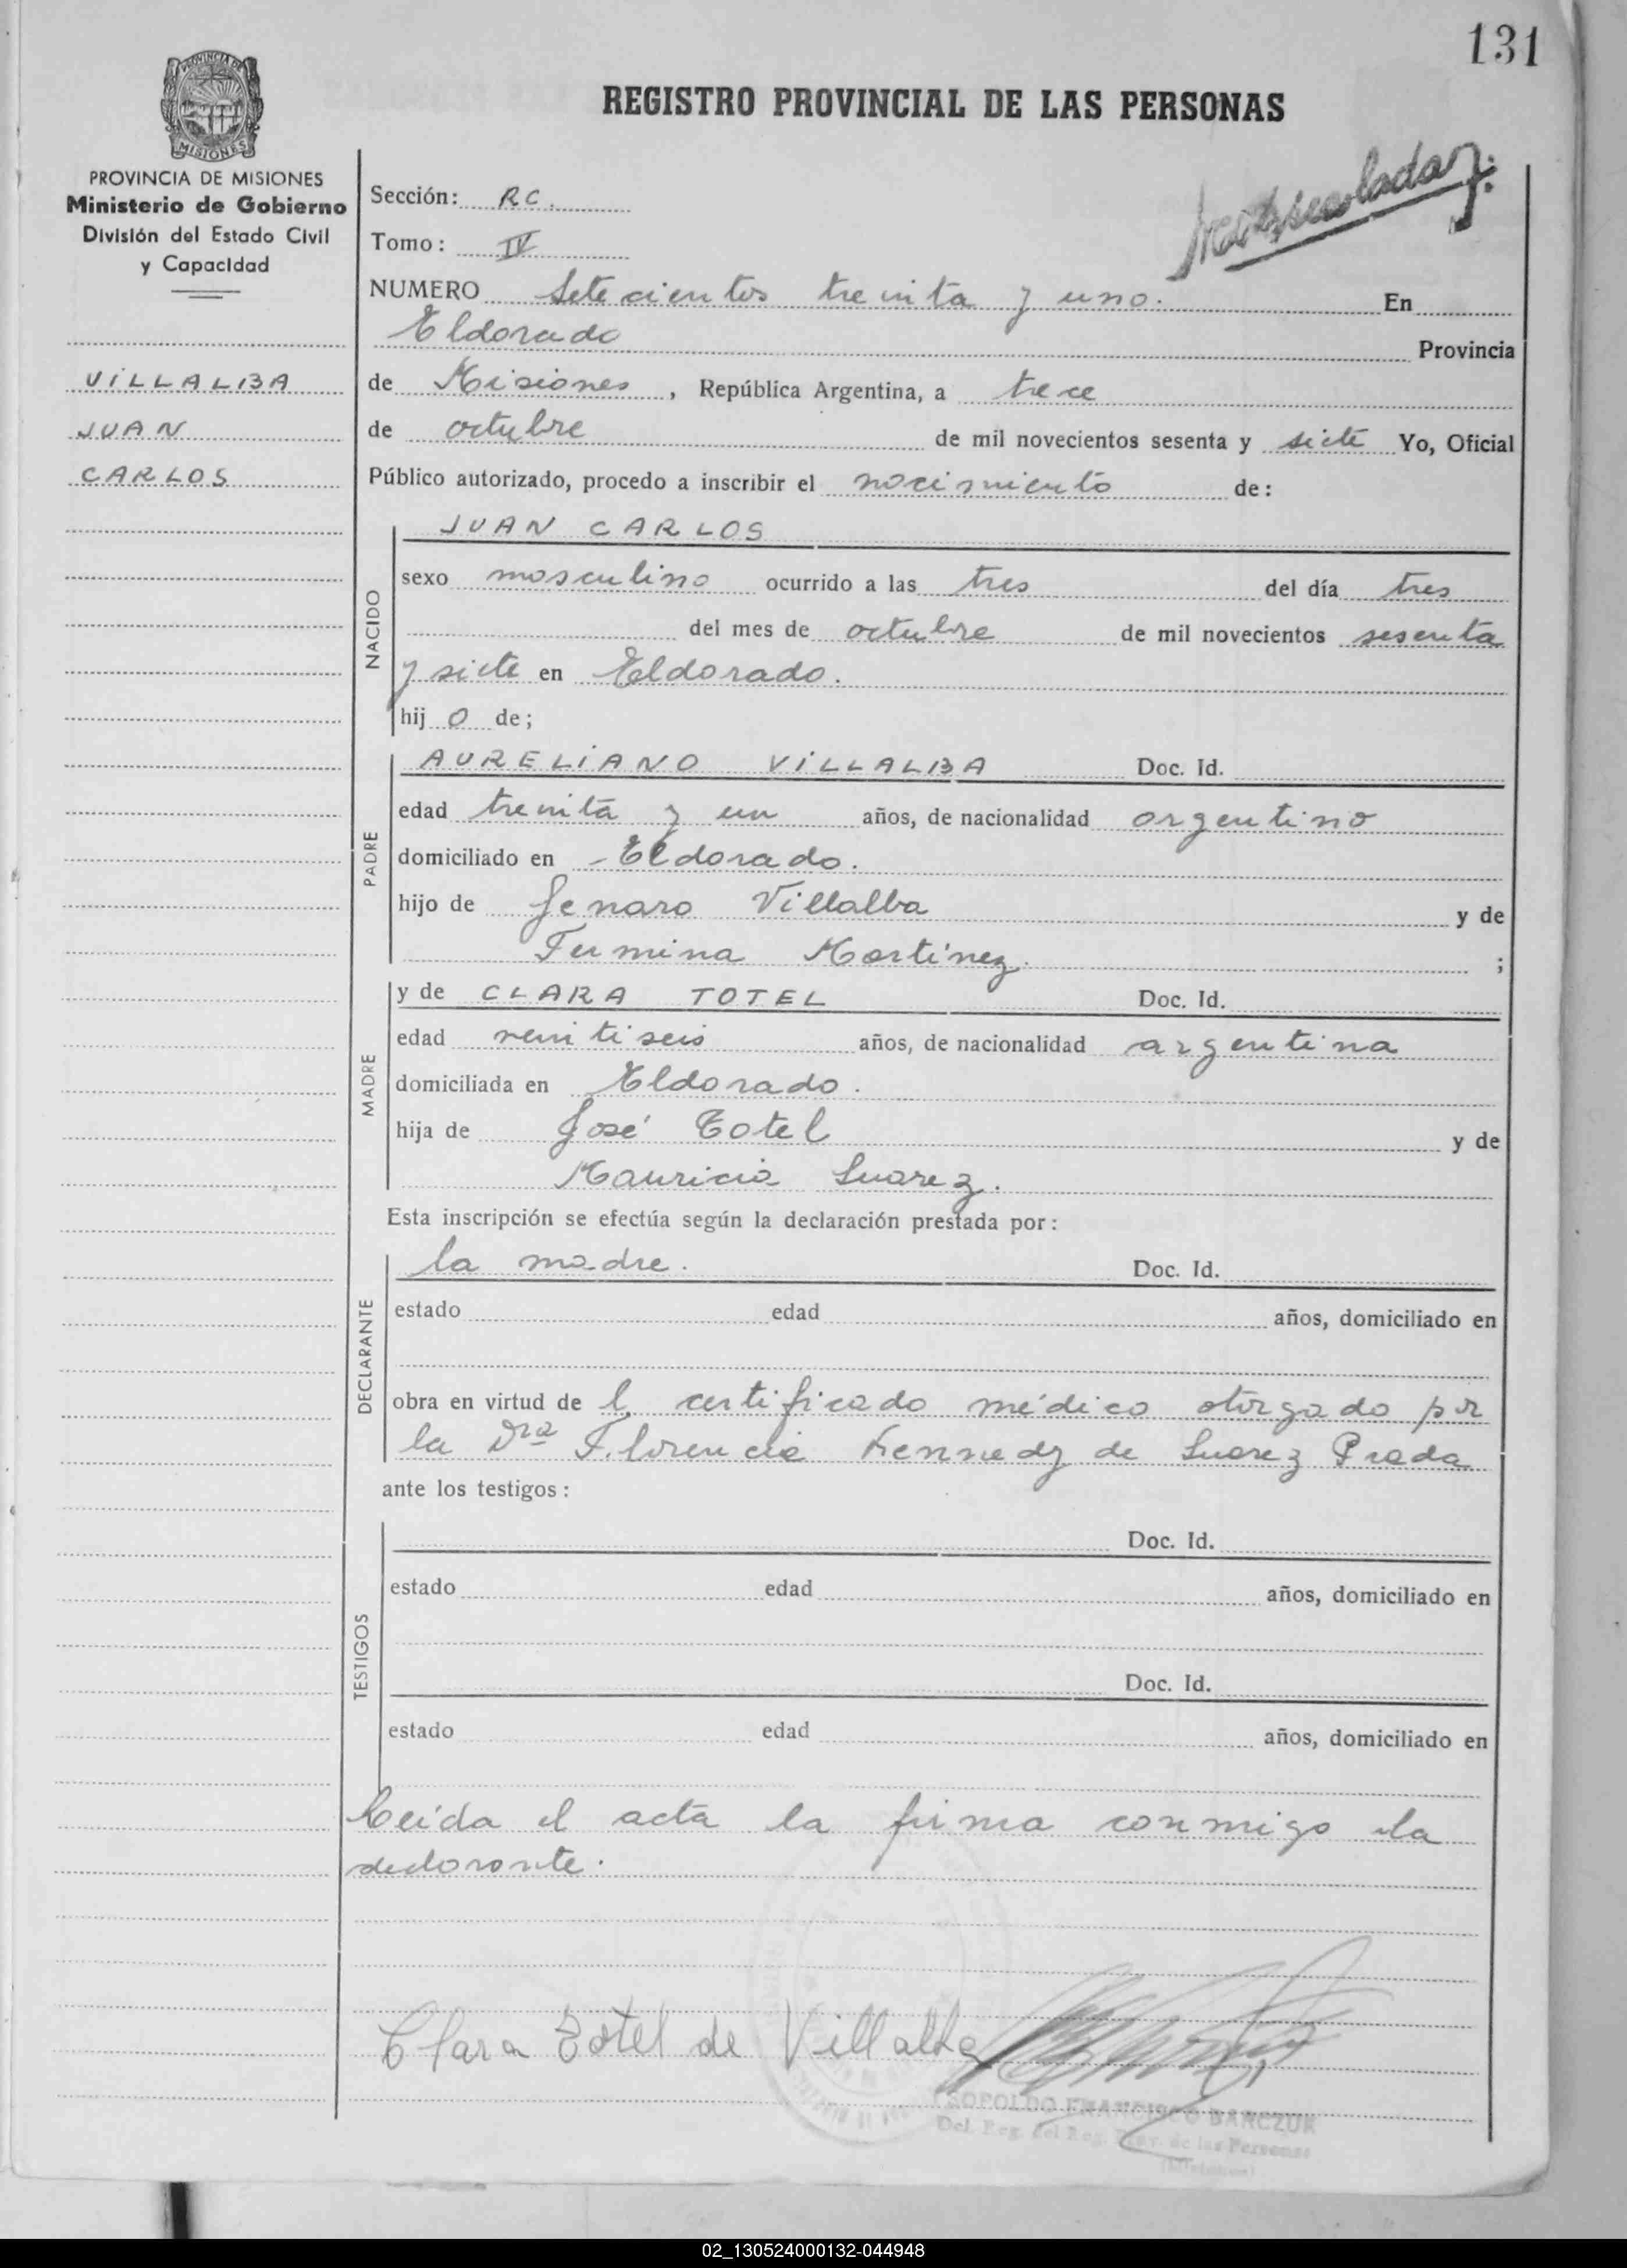 131
REGISTRO PROVINCIAL DE LAS PERSONAS
PROVINCIA DE
MISIONES
PROVINCIA DE MISIONES
Ministerio de Gobierno
División del Estado Civil
y Capacidad
VILLALBA
JUAN
CARLOS
Sección: RC.
Tomo: IV
NUMERO Setecientos treinta y uno. En
Eldorado Provincia
de Misiones, República Argentina, a trece
de octubre de mil novecientos sesenta y siete Yo, Oficial
Público autorizado, procedo a inscribir el nacimiento de:
NACIDO
JUAN CARLOS
sexo masculino ocurrido a las tres del día tres
del mes de octubre de mil novecientos sesenta
y siete en Eldorado.
hijo de;
PADRE
AURELIANO VILLALBA Doc. Id.
edad treinta y un años, de nacionalidad argentino
domiciliado en Eldorado.
hijo de Jenaro Villalba y de
Fermina Martinez. ;
MADRE
y de CLARA TOTEL Doc. Id.
edad veintiseis años, de nacionalidad argentina
domiciliada en Eldorado.
hija de José Totel y de
Mauricia Suarez.
Esta inscripción se efectúa según la declaración prestada por:
DECLARANTE
la madre. Doc. Id.
estado edad años, domiciliado en
obra en virtud del certificado médico otorgado por
la Dra Florencia Kennedy de Suarez Prada
ante los testigos:
TESTIGOS
Doc. Id.
estado edad años, domiciliado en
Doc. Id.
estado edad años, domiciliado en
Leída el acta la firma conmigo la
declarante.
Clara Totel de Villalba
LEOPOLDO FRANCISCO BARCZUK
Del. Reg. del Reg. Prov. de las Personas
(Misiones)
02_130524000132-044948